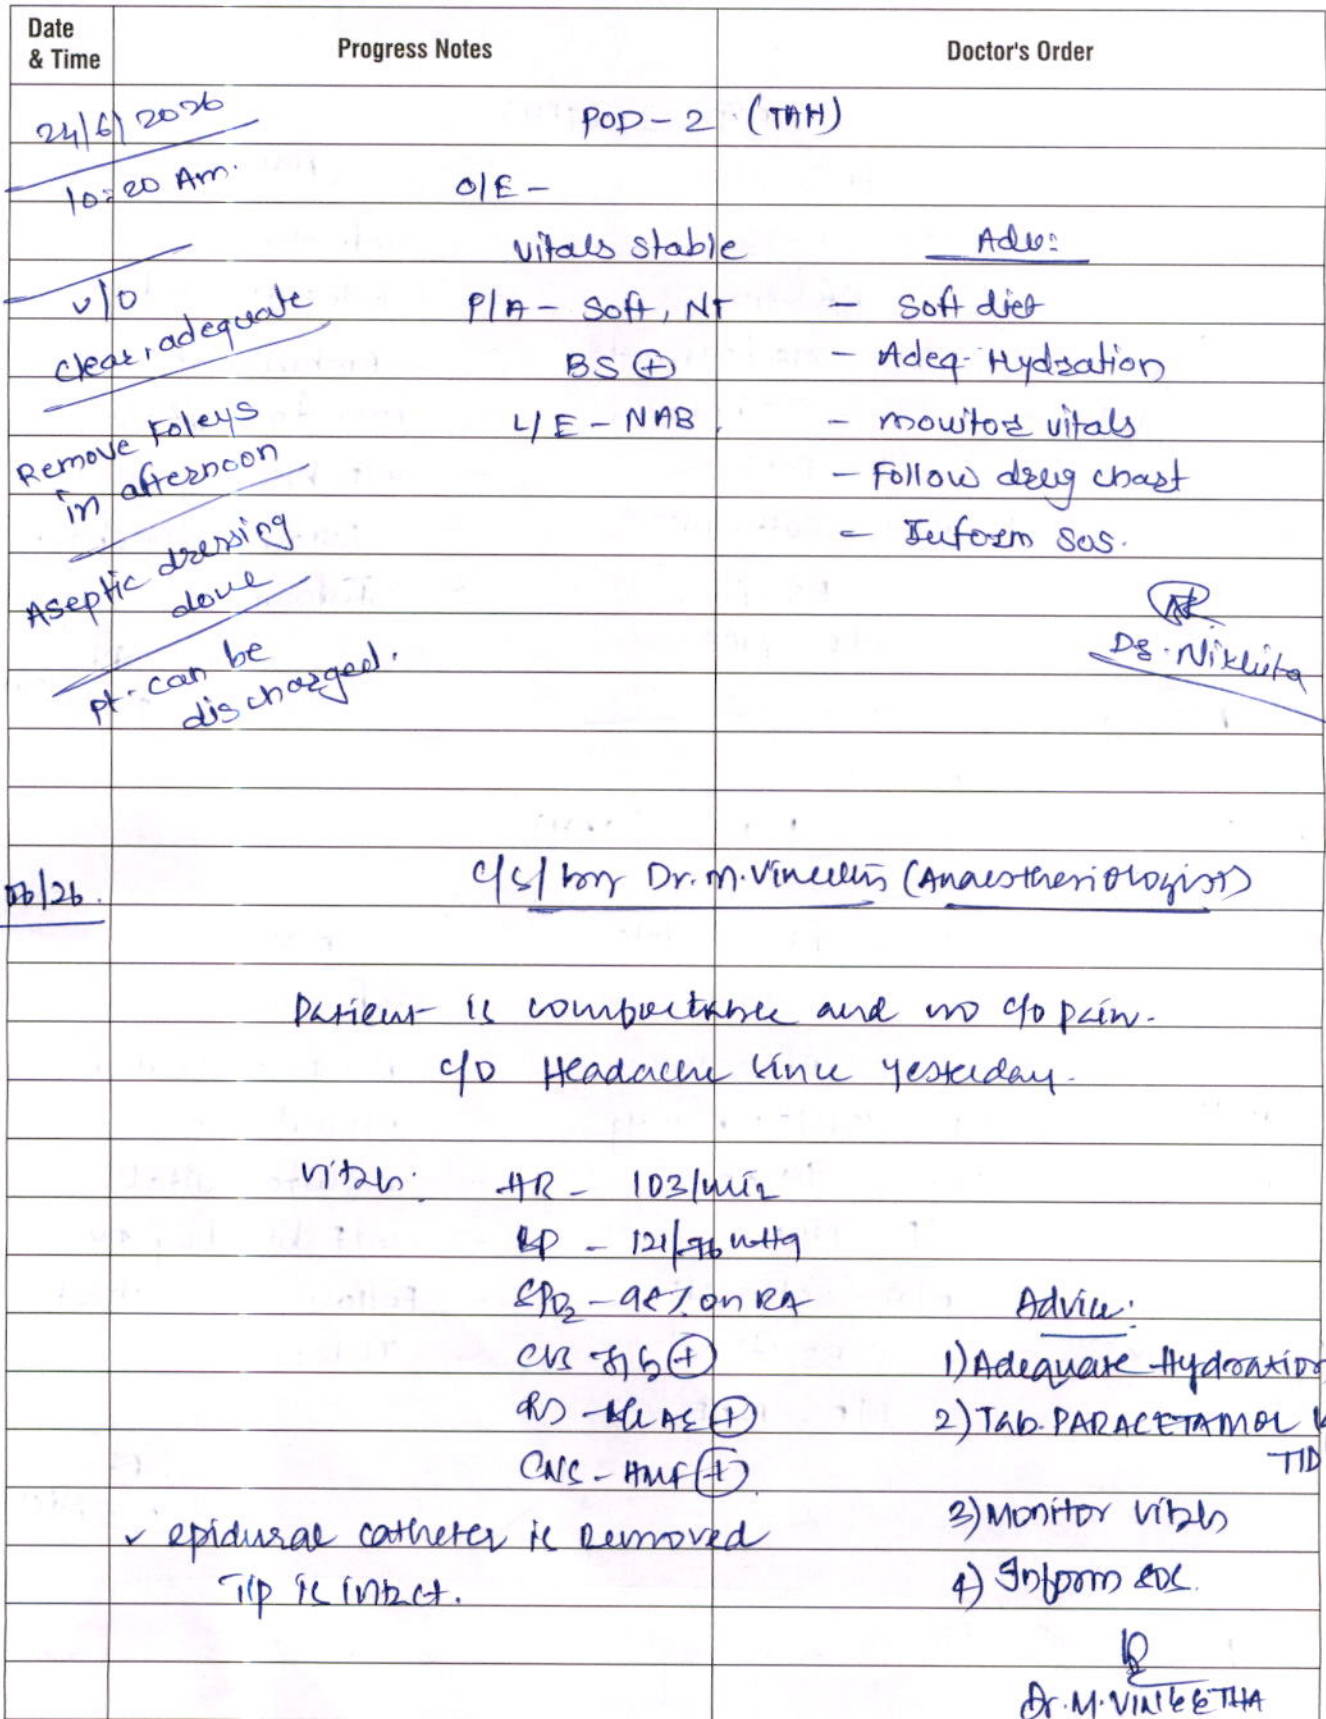 Date & Time
Progress Notes
Doctor's Order
24/6/2026
10:20 Am.
POD - 2 (TAH)
O/E -
Vitals stable
P/A - Soft, NT
BS ⊕
L/E - NAB
U/O
Clear, adequate
Remove Foleys
in afternoon
Aseptic dressing
done
pt. can be
discharged.
Adv:
- Soft diet
- Adeq. Hydration
- monitor vitals
- Follow drug chart
- Inform SOS.
Dr. Nikhita
06/26.
C/S/ by Dr. M. Vineetha (Anaesthesiologist)
Patient is comfortable and no c/o pain.
c/o Headache since yesterday.
Vitals: HR - 103/min
BP - 121/76 mmHg
SPO2 - 98% on RA
CVS - S1S2 ⊕
RS - AE ⊕
CNS - HMF ⊕
✓ epidural catheter is Removed
Tip is intact.
Advice:
1) Adequate Hydration
2) Tab. PARACETAMOL
TID
3) Monitor Vitals
4) Inform SOS.
Dr. M. VINEETHA